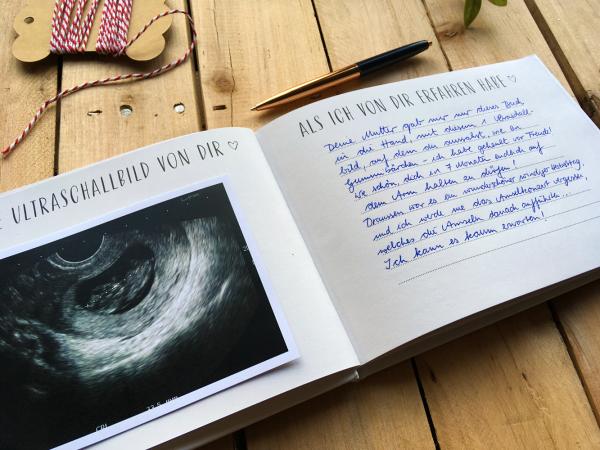 ULTRASCHALLBILD VON DIR ♡
ALS ICH VON DIR ERFAHREN HABE ♡
Deine Mutter gab mir nur dieses Buch
in die Hand, mit diesem 1. Ultraschall-
bild, auf dem du aussahst, wie ein
Gummibärchen - ich habe geheult vor Freude!
Wie schön, dich in 7 Monaten endlich auf
dem Arm halten zu dürfen!
Draussen war es ein wunderschöner sonniger
und ich werde nie das Amselkonzert vergessen,
welches die Amseln danach aufführten...
Ich kann es kaum erwarten!
CRL